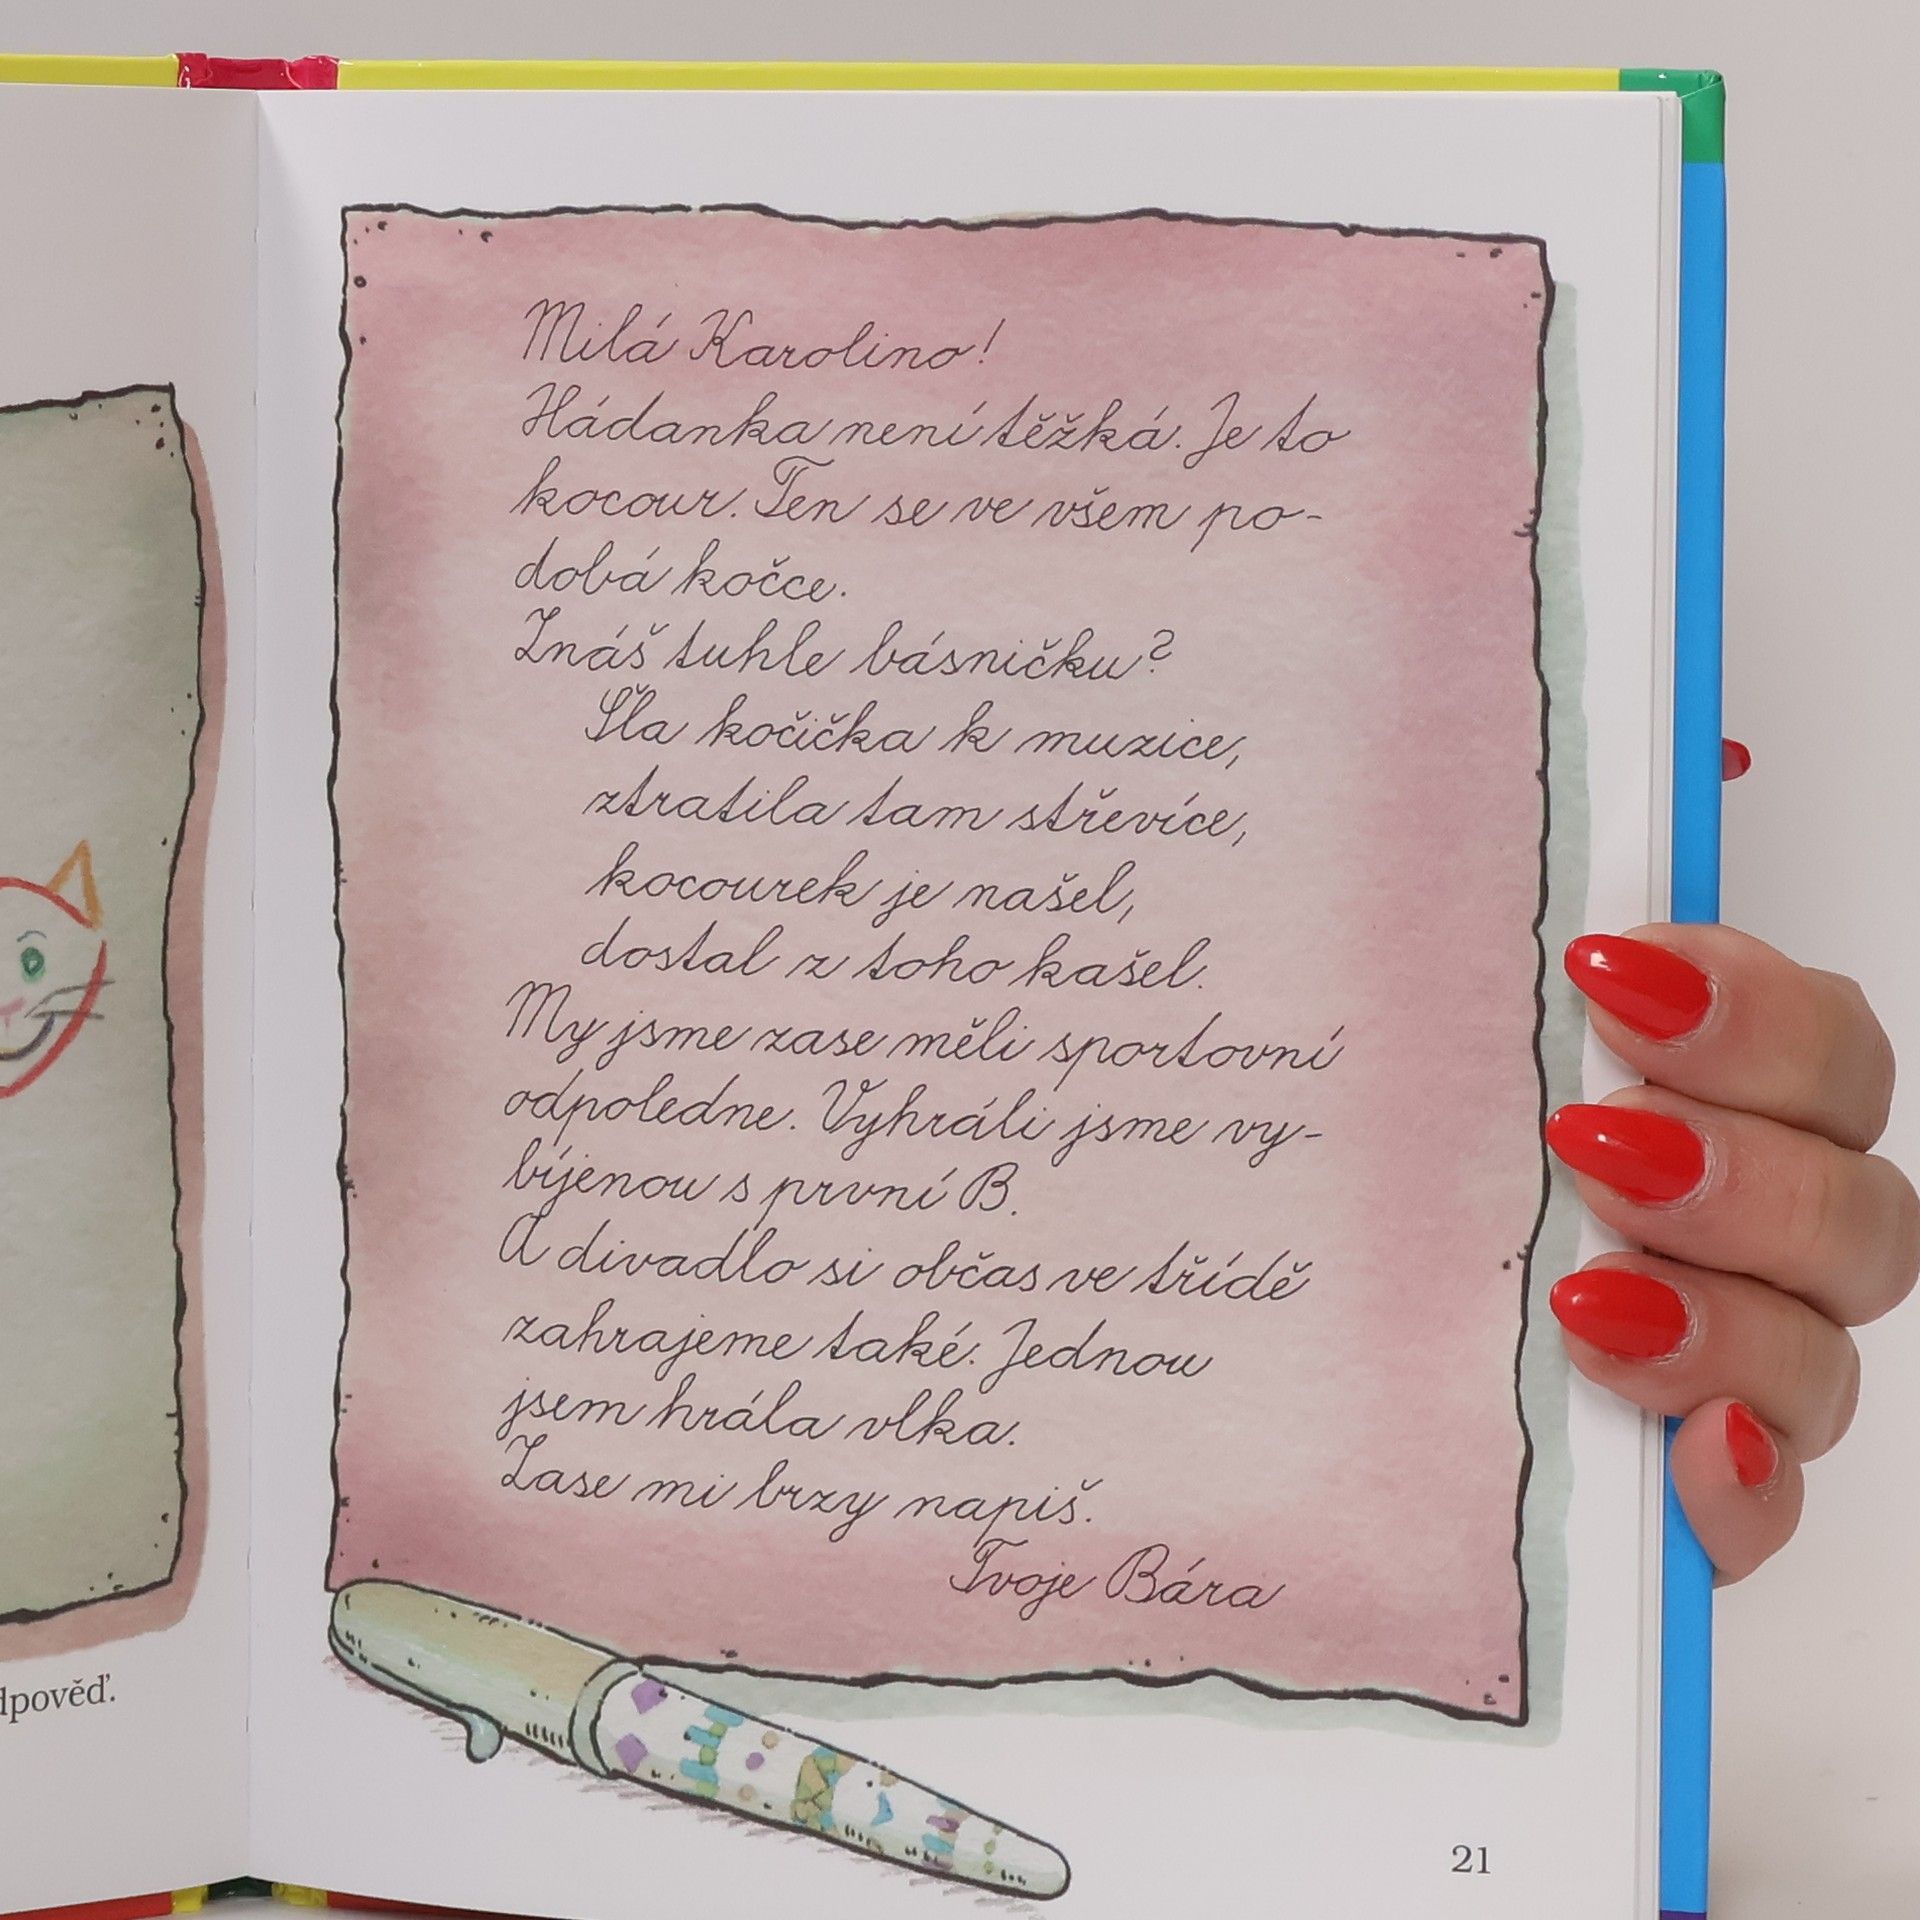 Milá Karolino!
Hádanka není těžká. Je to
kocour. Ten se ve všem po-
dobá kočce.
Znáš tuhle básničku?
Šla kočička k muzice,
ztratila tam střevíce,
kocourek je našel,
dostal z toho kašel.
My jsme zase měli sportovní
odpoledne. Vyhráli jsme vy-
bíjenou s první B.
A divadlo si občas ve třídě
zahrajeme také. Jednou
jsem hrála vlka.
Zase mi brzy napiš.
Tvoje Bára
dpověď.
21